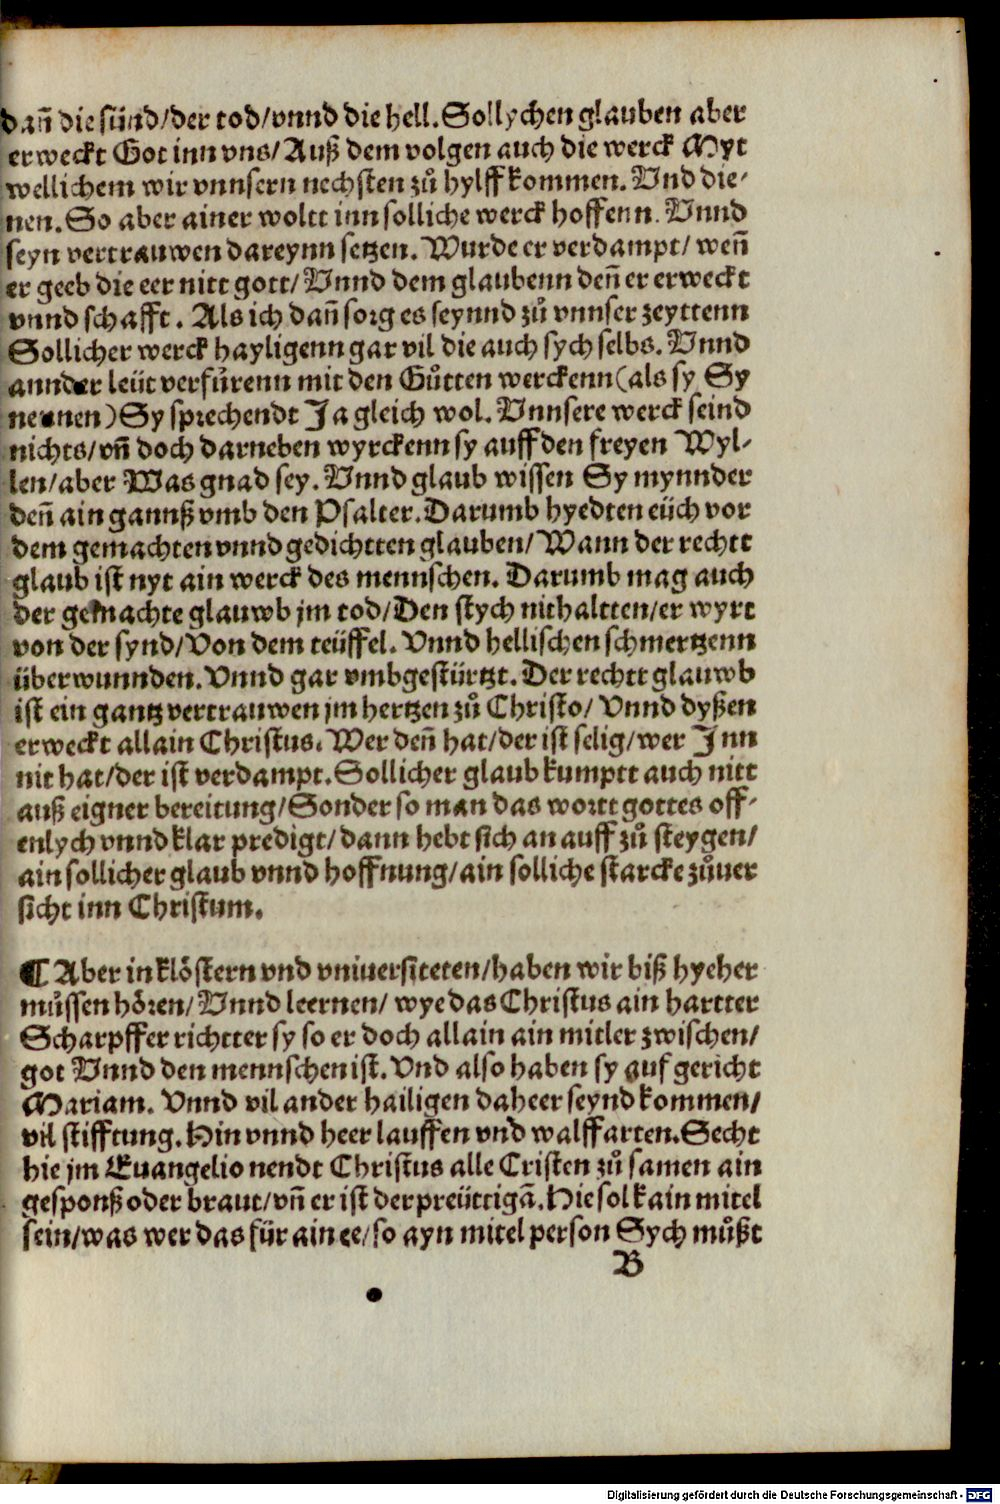 dañ die sünd/der tod/vnnd die hell. Sollychen glauben aber
erweckt Got inn vns/Auß dem volgen auch die werck Myt
wellichem wir vnnsern nechsten zů hylff kommen. Vnd die-
nen. So aber ainer woltt inn solliche werck hoffenn. Vnnd
seyn vertrauwen dareynn setzen. Wurde er verdampt/ weñ
er geeb die eer nitt gott/ Vnnd dem glaubenn deñ er erweckt
vnnd schafft. Als ich dañ sorg es seynnd zů vnnser zeyttenn
Sollicher werck hayligenn gar vil die auch sych selbs. Vnnd
annder leüt verfürenn mit den Gůtten werckenn (als sy Sy
nennen) Sy sprechendt Ja gleich wol. Vnnsere werck seind
nichts/vñ doch darneben wyrckenn sy auff den freyen Wyl-
len/aber Was gnad sey. Vnnd glaub wissen Sy mynnder
deñ ain gannß vmb den Psalter. Darumb hyedten eüch vor
dem gemachten vnnd gedichtten glauben/ Wann der rechtt
glaub ist nyt ain werck des mennschen. Darumb mag auch
der gemachte glauwb jm tod/Den stych nit haltten/er wyrt
von der synd/Von dem teüffel. Vnnd hellischen schmertzenn
überwunnden. Vnnd gar vmbgestürtzt. Der rechtt glauwb
ist ein gantz vertrauwen jm hertzen zů Christo/ Vnnd dyßen
erweckt allain Christus. Wer deñ hat/der ist selig/wer Jnn
nit hat/der ist verdampt. Sollicher glaub kumptt auch nitt
auß eigner bereitung/Sonder so man das wortt gottes off-
enlych vnnd klar predigt/dann hebt sich an auff zů steygen/
ain sollicher glaub vnnd hoffnung/ain solliche starcke zůuer
sicht inn Christum.
¶ Aber in klöstern vnd vniuersiteten/haben wir biß hyeher
müssen hören/ Vnnd leernen/ wye das Christus ain hartter
Scharpffer richtter sy so er doch allain ain mitler zwischen/
got Vnnd den mennschen ist. Vnd also haben sy auf gericht
Mariam. Vnnd vil ander hailigen daheer seynd kommen/
vil stifftung. Hin vnnd heer lauffen vnd walffarten. Secht
hie jm Euangelio nendt Christus alle Cristen zů samen ain
gesponß oder braut/vñ er ist der preüttigā. Hie sol kain mitel
sein/was wer das für ain ee/so ayn mitel person Sych můßt
B
Digitalisierung gefördert durch die Deutsche Forschungsgemeinschaft - DFG